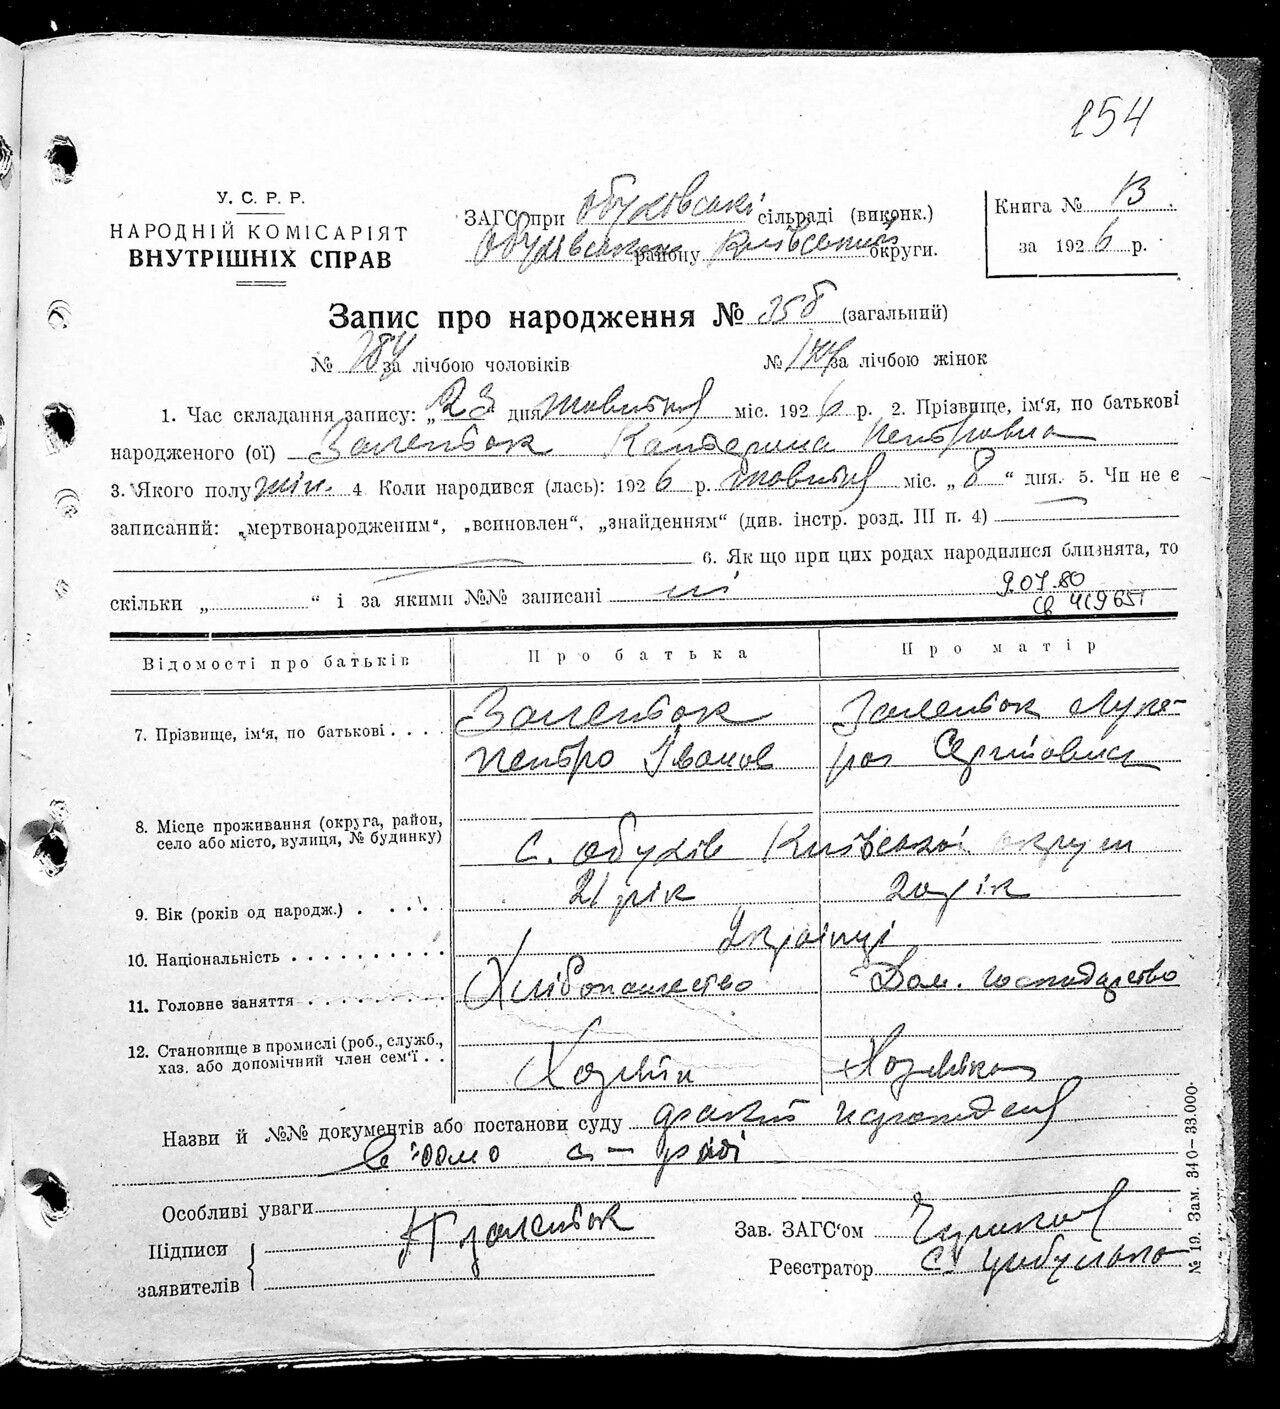 154
У. С. Р. Р.
НАРОДНІЙ КОМІСАРІЯТ
ВНУТРІШНІХ СПРАВ
ЗАГС при Обухівські сільраді (виконк.)
Обухівського району Київський округи.
Книга № 13
за 1926 р.
Запис про народження № 358 (загальний)
№ за лічбою чоловіків № 174 за лічбою жінок
1. Час складання запису: „23 дня Жовтня міс. 1926 р. 2. Прізвище, ім'я, по батькові
народженого (ої) Залепок Катерина Петровна
3. Якого полу жін. 4 Коли народився (лась): 1926 р. Жовтня міс. „8“ дня. 5. Чи не є
записаний: „мертвонародженим“, „всиновлен“, „знайденям“ (див. інстр. розд. III п. 4)
6. Як що при цих родах народилися близнята, то
скільки „ “ і за якими №№ записані ні
9.07.80
св 419651
Відомості про батьків Про батька Про матір
7. Прізвище, ім'я, по батькові . . . . Залепок Залепок Луке-
Петро Іванов рія Сергіївна
8. Місце проживання (округа, район,
село або місто, вулиця, № будинку) С. Обухів Київської округи
9. Вік (років од народж.) . . . . . 21 рік 20 рік
10. Національність . . . . . . . . . . Українці
11. Головне заняття . . . . . . . . . Хлібопашество Дом. господарство
12. Становище в промислі (роб., служб.,
хаз. або допомічний член сем'ї . . Хозяїн Хозяйка
Назви й №№ документів або постанови суду факт народження
відомо с-раді
Особливі уваги
Підписи
заявителів
П Залепок
Зав. ЗАГС'ом
Реєстратор С. Цибулько
№ 19. Зам. 340–33.000.